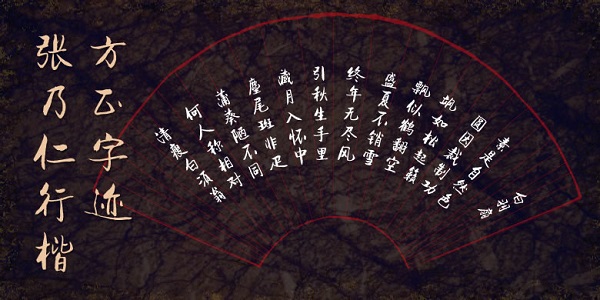 方正字迹
张乃仁行楷
白羽扇
素是自然色
圆因裁制功
飒如松起籁
飘似鹤翻空
盛夏不销雪
终年无尽风
引秋生手里
藏月入怀中
麈尾班非疋
蒲葵陋不同
何人称相对
清瘦白须翁